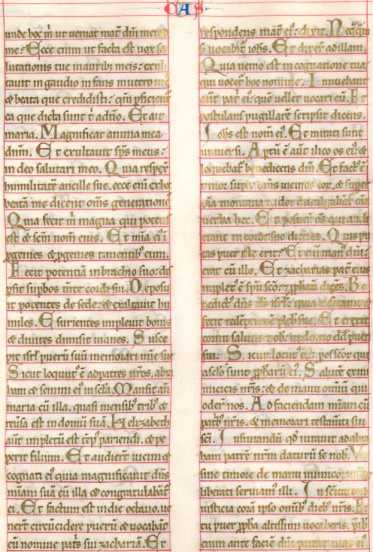 CAS
unde hoc m̄ ut veniat mat̄ dn̄i mei ad
me. Ecce enim ut facta est vox sa
lutationis tue in aurib; meis: exul
tavit in gaudio infans in utero meo
et beata que credidisti: qm̄ pficient̄
ea que dicta sunt t̄ a dn̄o. Et ait
maria. Magnificat anima mea
dnm̄. Et exultavit sp̄s meus:
in deo salutari meo. Quia respex̄
humilitatē ancille sue. ecce eni ex hoc
beatā me dicent om̄s generationes
Quia fecit m̄ magna qui potens
est et scm̄ nom̄ eius. Et mīa ei' i
pgenies et pgenies timentib; eum.
Fecit potentiā in brachio suo: dis
psit supbos m̄te cordis sui. Deposu
it potentes de sede: et exaltavit hu
miles. Esurientes implevit bonis
et divites dimisit inanes. Susce
pit isrl̄ puerū suū memorari mīe sue
Sicut locut' ē ad patres nr̄os. abra
ham et semini ei' in sc̄la. Mansit aū
maria cū illa quasi mensib; trib; et
reūsa est in domū suā. Helizabeth
aut̄ impletū est tp̄s pariendi. et pe
perit filium. Et audierūt vicini et
cognati ei' quia magnificavit dn̄s
miam suā cū illa et congratulabāt
ei. Et factum est in die octavo. ve
nert̄ circūcidere puerū et vocabāt
eū nomine patris sui zachariā. Et
respondens mat̄ ei': dixit. Nequaquā
s; vocabit̄ iohs. Et dixer̄ ad illam.
Quia nemo est in cognatione tua
qui vocet̄ hoc nomine. Innuebant
aut̄ patri ei'. quē vellet vocari eū. Et
postulans pugillarē scripsit dicens.
Iohs est nom̄ ei'. Et mirati sunt
universi. Aptū ē aut̄ ilico os ei' et
loquebat̄ benedicens dm̄. Et fact' ē
timor sup om̄s vicinos eor. et sup
oīa montana iudee divulgabāt̄ oīa
verba hec. Et posuert̄ oēs qui audi
erant in corde suo dicētes. Quis putas
puer iste erit? Et eni man' dn̄i
erat cū illo. Et zacharias pat̄ ei'
implet' ē spū scō: et pphavit dicens. Be
nedict' dn̄s ds̄ isrl̄: quia visitavit et
fecit redēptionē plebis sue. Et erexit
cornu salutis nob: in domo david pueri
sui. Sicut locut' ē p os scōr̄ qui
a sclo sunt pphar ei'. Salutē ex ini
micis nr̄is: et de manu omiū qui
oder̄ nos. Ad faciendam miam cū
patrib; nr̄is. et memorari testam̄ti sui
sc̄i. Iusiurandū qd' iuravit ad abra
ham patrē nr̄m daturū se nob.
sine timore de manu inimicor nr̄or
liberati serviam' illi. In scitate et
iusticia corā ipso omib; dieb; nr̄is. Et
tu puer ppha altissimi vocaberis. pibis
enim ante faciē dn̄i parare vias ei'.